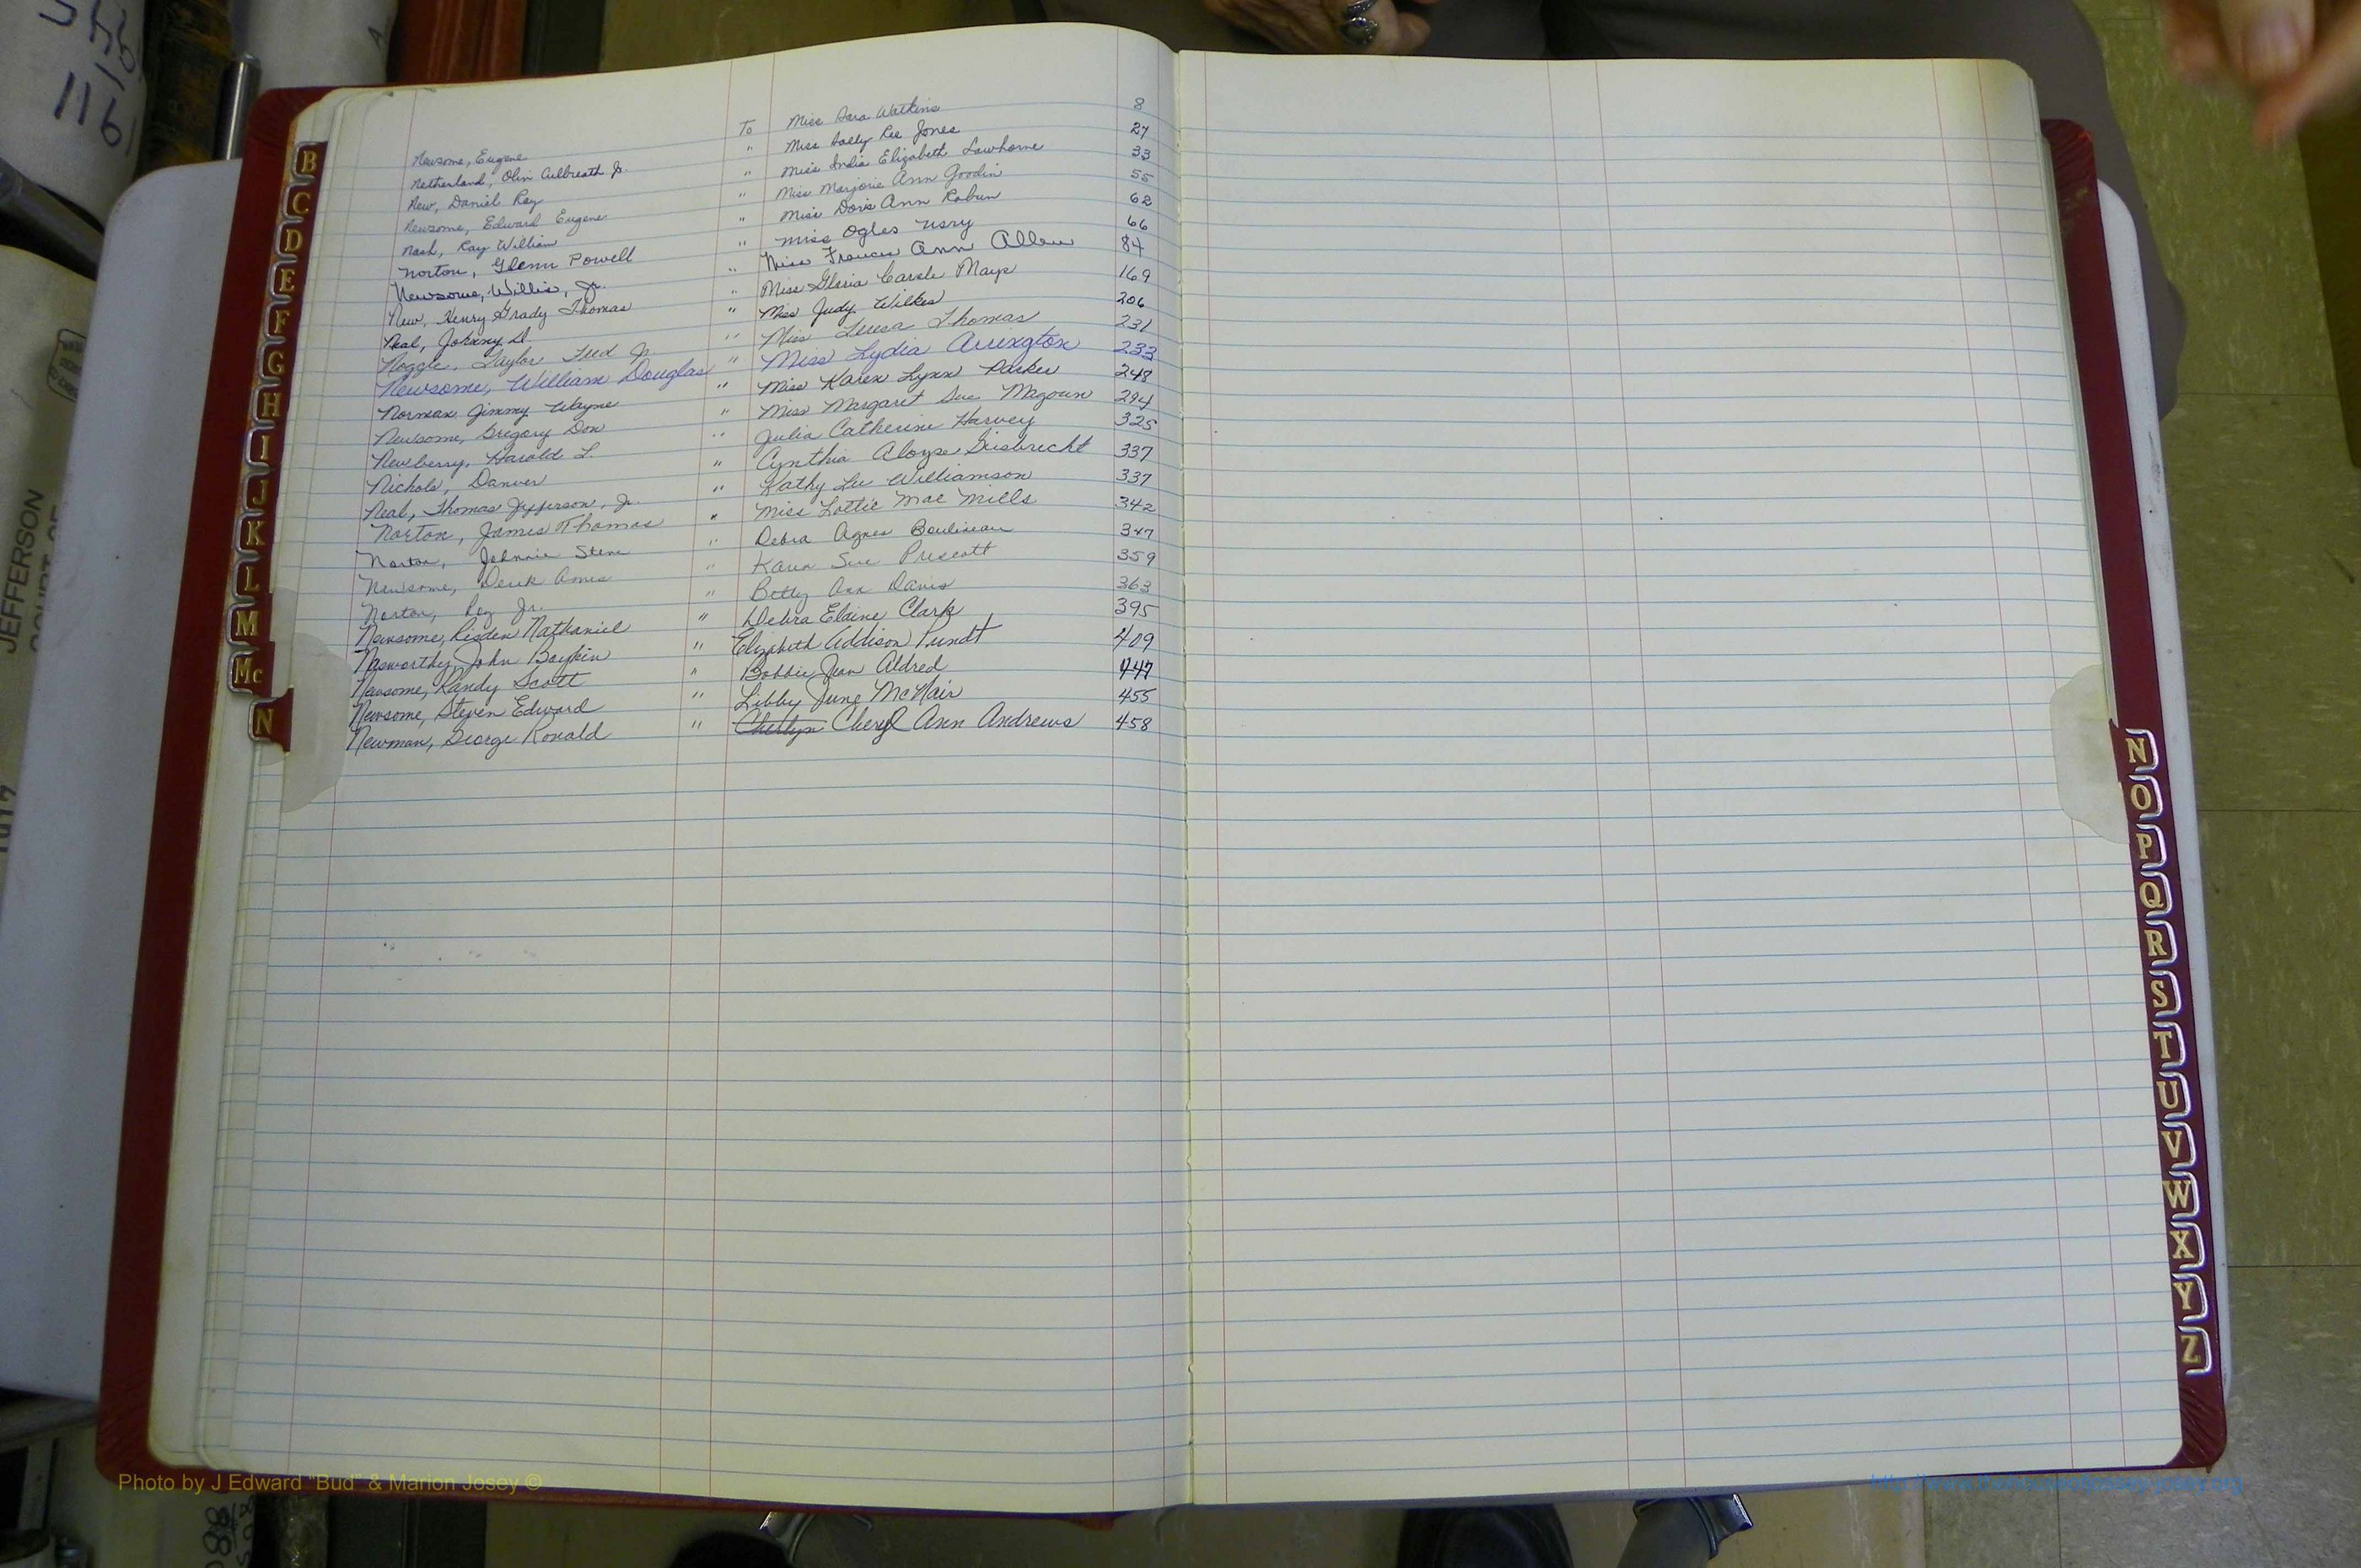 Newsome, Eugene To Miss Sara Watkins 8
Netherland, Olin Culbreath Jr. " Miss Sally Lee Jones 27
New, Daniel Ray " Miss India Elizabeth Lawhorne 33
Newsome, Edward Eugene " Miss Marjorie Ann Goodin 55
Nash, Ray William " Miss Doris Ann Rabun 62
Norton, Glenn Powell " Miss Ogles Usry 66
Newsome, Willis, Jr. " Miss Frances Ann Allen 84
New, Henry Grady Thomas " Miss Gloria Carole Mays 169
Neal, Johnny D. " Miss Judy Wilkes 206
Noggle, Taylor Teed Jr " Miss Teresa Thomas 231
Newsome, William Douglas " Miss Lydia Arrington 233
Norman Jimmy Wayne " Miss Karen Lynn Parker 248
Newsome, Gregory Don " Miss Margaret Sue Magoun 294
Newberry, Harold L. " Julia Catherine Harvey 325
Nichols, Danver " Cynthia Aloyse Giesbrecht 337
Neal, Thomas Jefferson, Jr. " Kathy Lee Williamson 337
Norton, James Thomas " Miss Lottie Mae Mills 342
Norton, Johnnie Steve " Debra Agnes Boulineau 347
Newsome, Derek Amis " Karen Sue Prescott 359
Norton, Roy Jr. " Betty Ann Davis 363
Newsome, Risden Nathaniel " Debra Elaine Clark 395
Nasworthy, John Boykin " Elizabeth Addison Pundt 409
Newsome, Randy Scott " Bobbie Jean Aldred 447
Newsome, Steven Edward " Libby June McNair 455
Newman, George Ronald " Cheryl Ann Andrews 458
B
C
D
E
F
G
H
I
J
K
L
M
Mc
N
N
O
P
Q
R
S
T
U
V
W
X
Y
Z
JEFFERSON
1161
Photo by J Edward "Bud" & Marion Josey ©